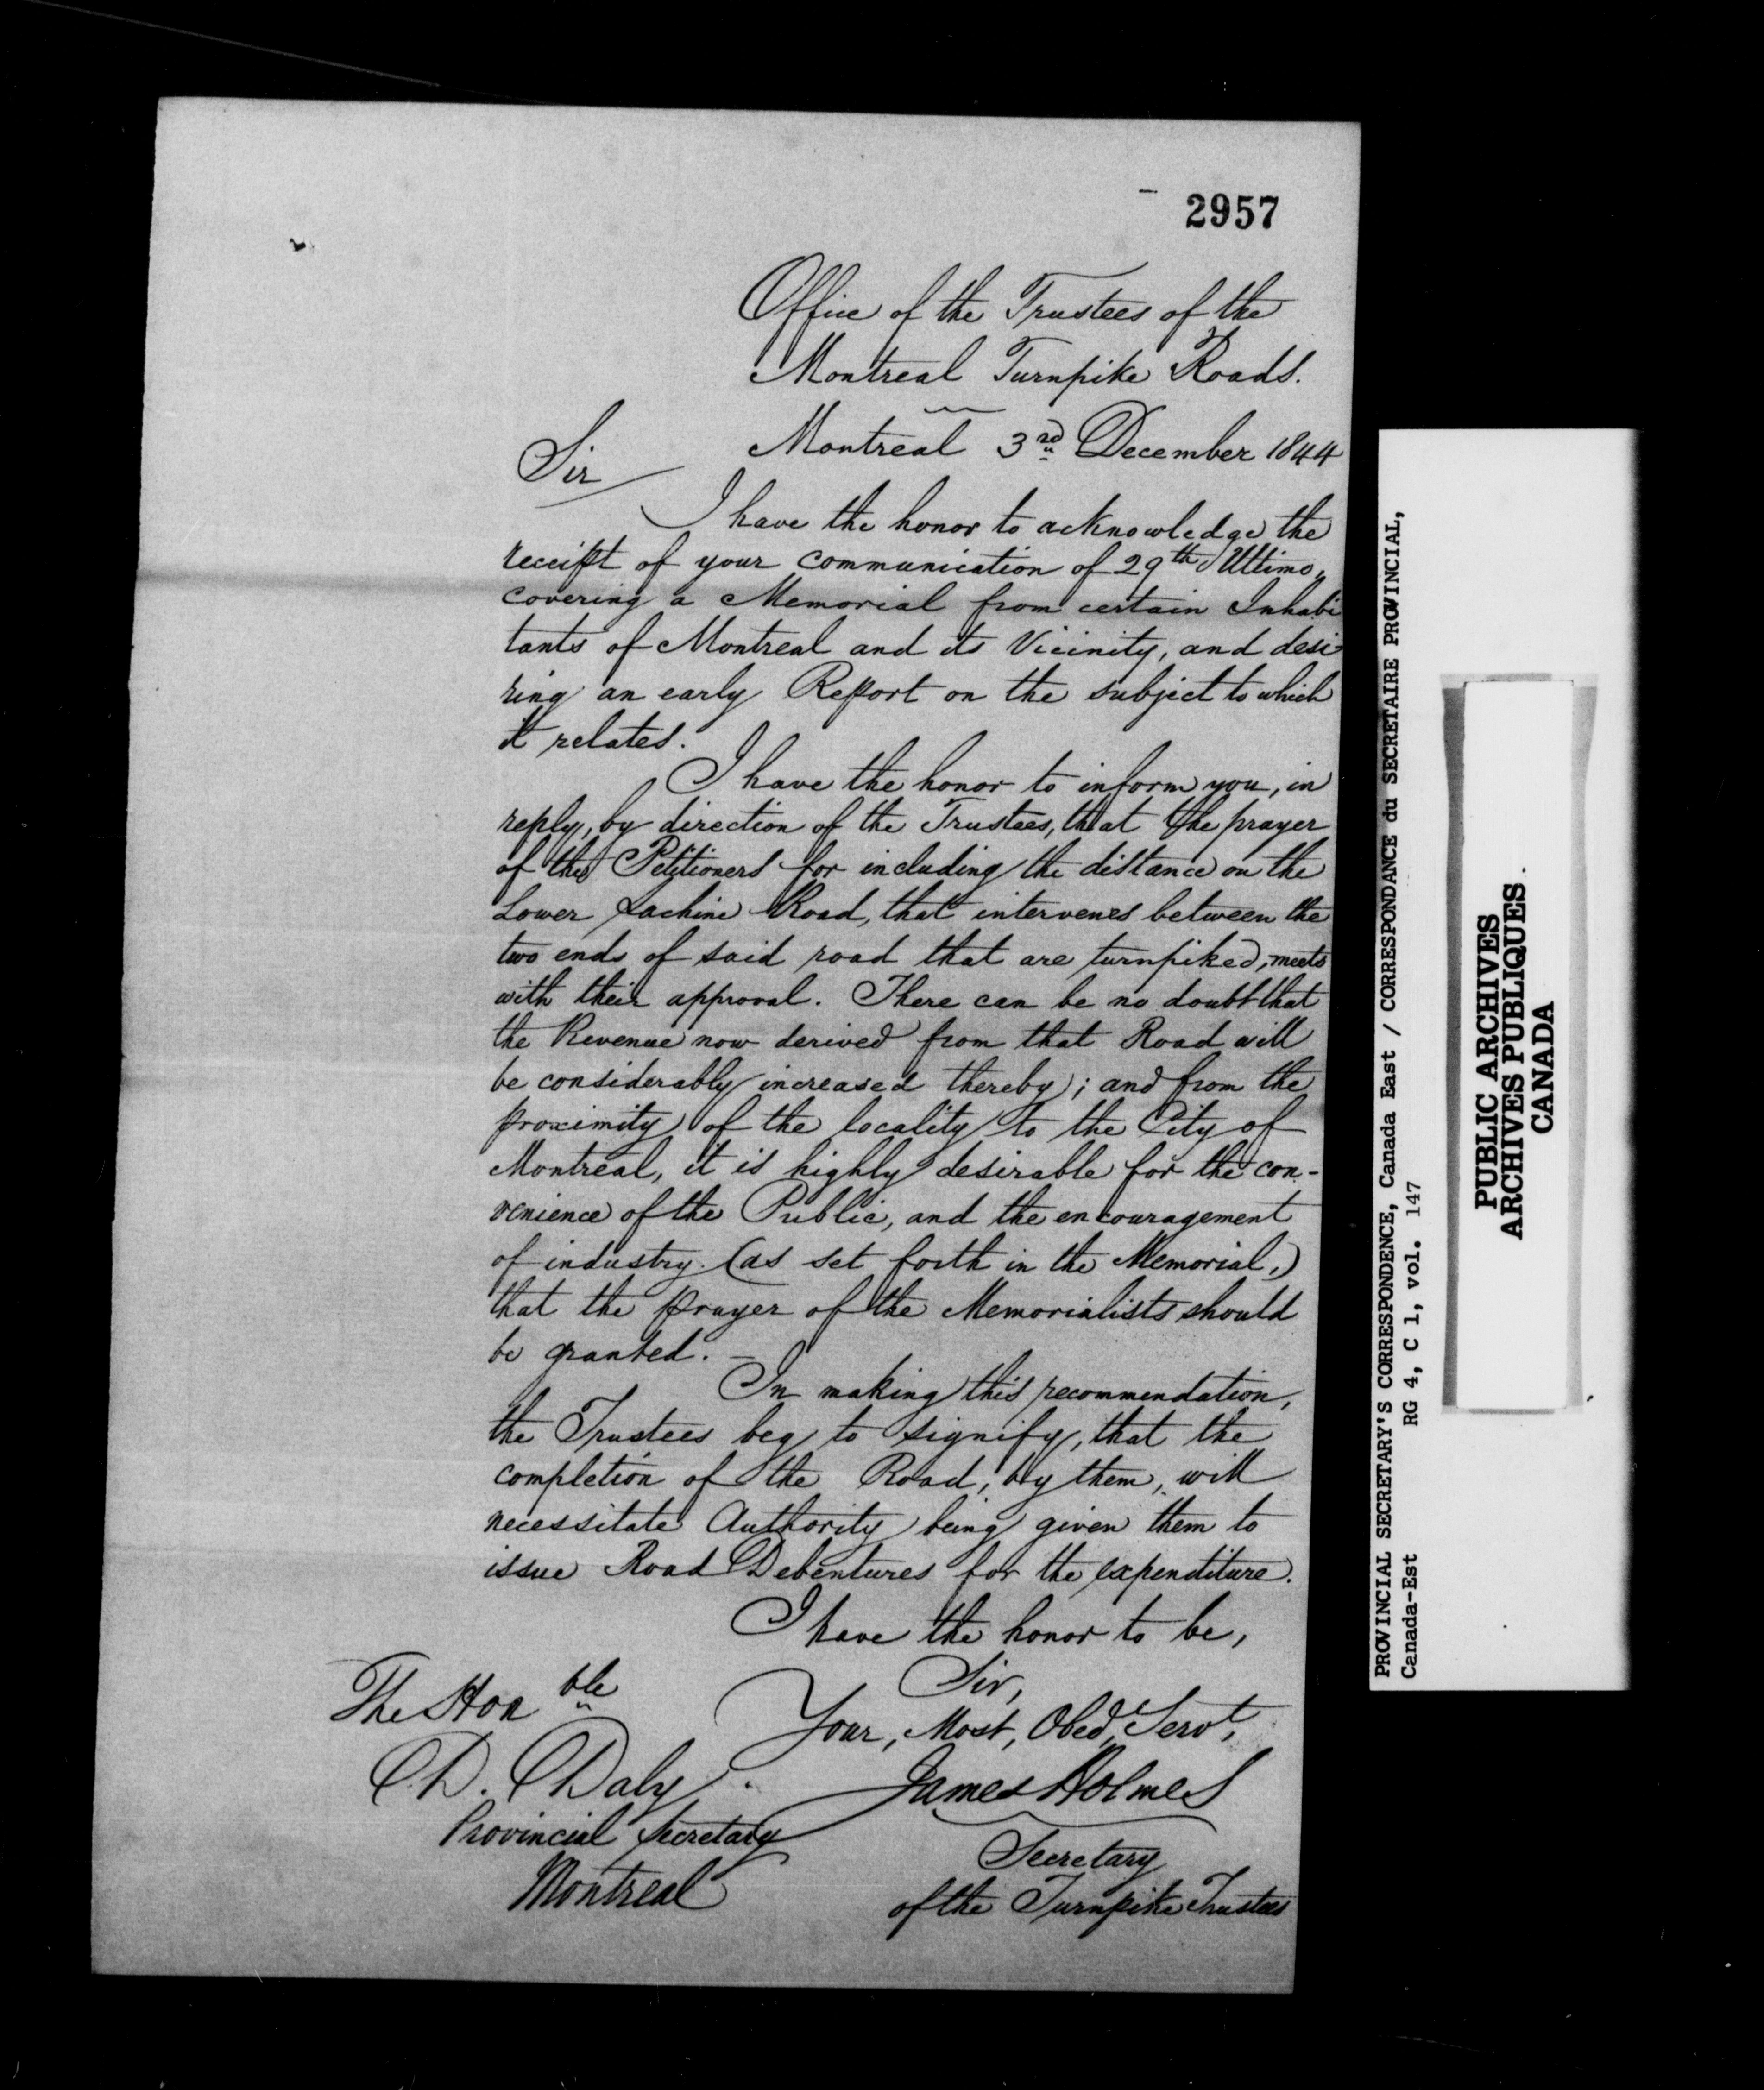 2957
Office of the Trustees of the
Montreal Turnpike Roads.
Montreal 3rd December 1844
Sir
I have the honor to acknowledge the
receipt of your communication of 29th Ultimo,
covering a Memorial from certain Inhabi
tants of Montreal and its Vicinity, and desi-
ring an early Report on the subject to which
it relates.
I have the honor to inform you, in
reply, by direction of the Trustees, that the prayer
of the Petitioners for including the distance on the
Lower Lachine Road, that intervenes between the
two ends of said road that are turnpiked, meets
with their approval. There can be no doubt that
the Revenue now derived from that Road will
be considerably increased thereby; and from the
proximity of the locality to the City of
Montreal, it is highly desirable for the con-
venience of the Public, and the encouragement
of industry (as set forth in the Memorial,)
that the prayer of the Memorialists should
be granted. —
In making this recommendation,
the Trustees beg to signify, that the
completion of the Road, by them, will
necessitate Authority being given them to
issue Road Debentures for the expenditure.
I have the honor to be,
Sir,
Your, Most, Obed, Servt,
James Holmes
Secretary
of the Turnpike Trustees
The Honble
D. Daly
Provincial Secretary
Montreal
PROVINCIAL SECRETARY'S CORRESPONDENCE, Canada East / CORRESPONDANCE du SECRETAIRE PROVINCIAL,
Canada-Est RG 4, C 1, vol. 147
PUBLIC ARCHIVES
ARCHIVES PUBLIQUES
CANADA